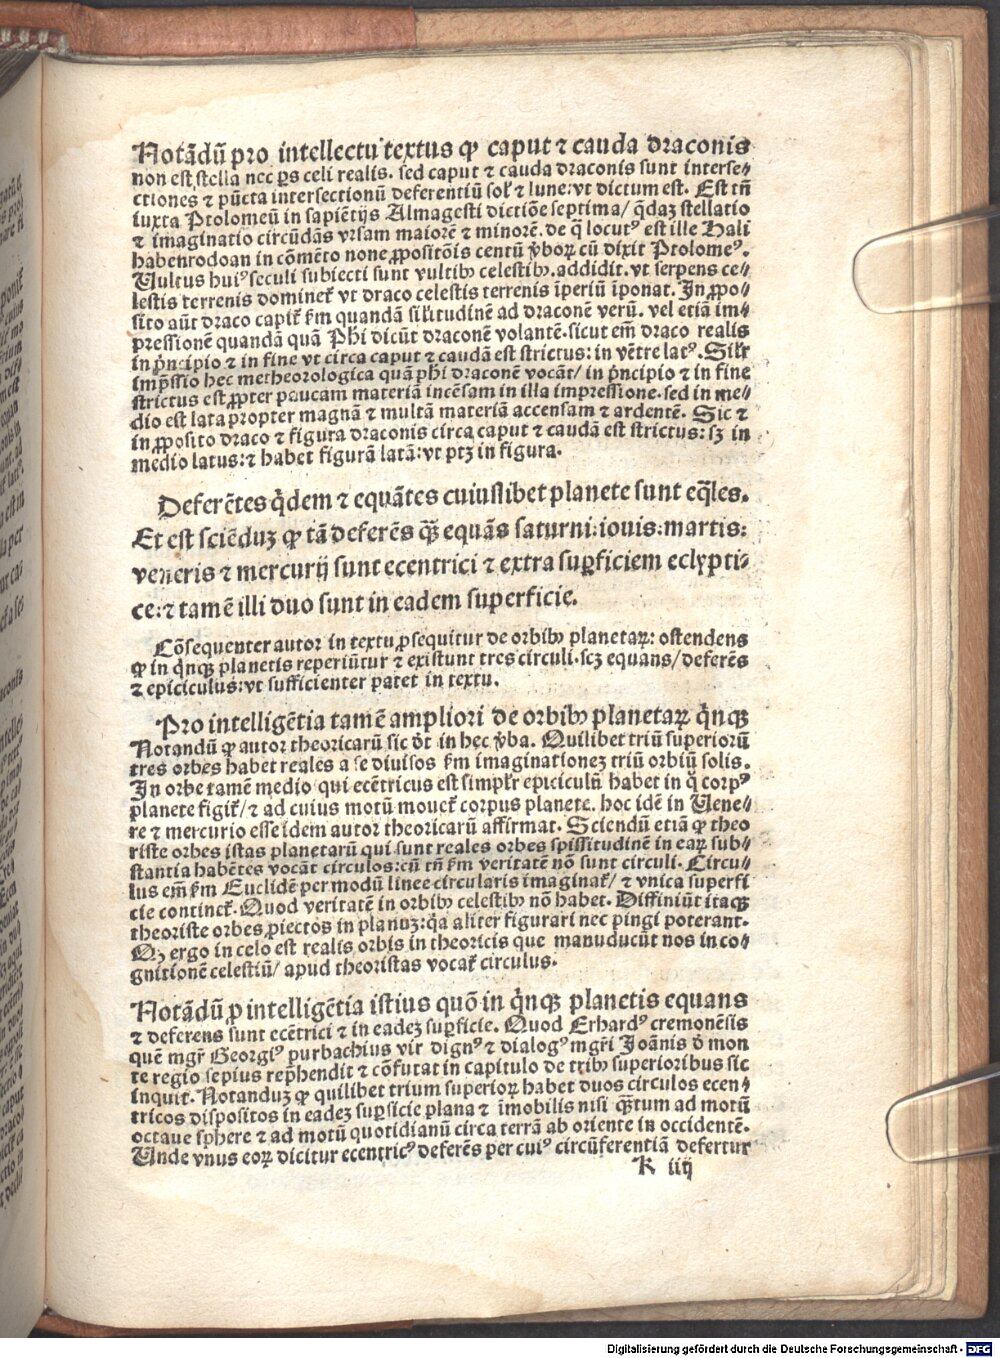 Notādū pro intellectu textus qꝫ caput ⁊ cauda draconis
non est stella nec ꝑs celi realis. sed caput ⁊ cauda draconis sunt interse⸗
ctiones ⁊ pūcta intersectionū deferentiū sol' ⁊ lune: vt dictum est. Est tñ
iuxta Ptolomeū in sapiētijs Almagesti dictiōe septima/ q̄daꝫ stellatio
⁊ imaginatio circūdās vrsam maiorē ⁊ minorē. de q̄ locutꝰ est ille Hali
habenrodoan in cōmēto none ꝓpositōis centū v̇boꝝ cū dixit Ptolomeꝰ.
Uultus huiꝰ seculi subiecti sunt vultibꝫ celestibꝫ. addidit. vt serpens ce⸗
lestis terrenis dominet̄ vt draco celestis terrenis īperiū īponat. In ꝓpo⸗
sito aūt draco capit̄ ẜm quandā sil'itudinē ad draconē verū. vel etiā im⸗
pressionē quandā quā Phi dicūt draconē volantē. sicut em̄ draco realis
in pṅcipio ⁊ in fine vt circa caput ⁊ caudā est strictus: in vētre latꝰ. Sil'r
imp̄ssio hec metheorologica quā phi draconē vocāt/ in pṅcipio ⁊ in fine
strictus est ꝓpter paucam materiā incēsam in illa impressione. sed in me⸗
dio est lata propter magnā ⁊ multā materiā accensam ⁊ ardentē. Sic ⁊
in ꝓposito draco ⁊ figura draconis circa caput ⁊ caudā est strictus: sꝫ in
medio latus: ⁊ habet figurā latā: vt ptꝫ in figura.
Deferētes q̇dem ⁊ equātes cuiuslibet planete sunt eq̄les.
Et est sciēduꝫ qꝫ tā deferēs q̄ꝫ equās saturni: iouis: martis:
veneris ⁊ mercurij sunt ecentrici ⁊ extra suꝑficiem eclypti⸗
ce: ⁊ tamē illi duo sunt in eadem superficie.
Cōsequenter autor in textu ꝓsequitur de orbibꝫ planetaꝝ: ostendens
qꝫ in q̇nqꝫ planetis reperiūtur ⁊ existunt tres circuli. scꝫ equans/ deferēs
⁊ epiciculus: vt sufficienter patet in textu.
Pro intelligētia tamē ampliori de orbibꝫ planetaꝝ q̇nqꝫ
Notandū qꝫ autor theoricarū sic dt̄ in hec v̇ba. Quilibet triū superiorū
tres orbes habet reales a se diuisos ẜm imaginationeꝫ triū orbiū solis.
In orbe tamē medio qui ecētricus est simpl'r epiciculū habet in q̇ corpꝰ
planete figit̄/ ⁊ ad cuius motū mouet̄ corpus planete. hoc idē in Uene⸗
re ⁊ mercurio esse idem autor theoricarū affirmat. Sciendū etiā qꝫ theo
riste orbes istas planetarū qui sunt reales orbes spissitudinē in eaꝝ sub⸗
stantia habētes vocāt circulos: cū tñ ẜm veritatē nō sunt circuli. Circu⸗
lus em̄ ẜm Euclidē per modū linee circularis imaginat̄/ ⁊ vnica superfi
cie continet̄. Quod veritatē in orbibꝫ celestibꝫ nō habet. Diffiniūt itaqꝫ
theoriste orbes ꝓiectos in planuꝫ: q̇a aliter figurari nec pingi poterant.
Qꝫ ergo in celo est realis orbis in theoricis que manuducūt nos in co⸗
gnitionē celestiū/ apud theoristas vocat̄ circulus.
Notādū ꝓ intelligētia istius quō in q̇nqꝫ planetis equans
⁊ deferens sunt ecētrici ⁊ in eadeꝫ suꝑficie. Quod Erhardꝰ cremonēsis
quē mgr̄ Georgiꝰ purbachius vir dignꝰ ⁊ dialogꝰ mgr̄i Joānis d̄ mon
te regio sepius rep̄hendit ⁊ cōfutat in capitulo de tribꝫ superioribus sic
inquit. Notanduꝫ qꝫ quilibet trium superioꝝ habet duos circulos ecen⸗
tricos dispositos in eadeꝫ suꝑficie plana ⁊ īmobilis nisi q̄ꝫtum ad motū
octaue sphere ⁊ ad motū quotidianū circa terrā ab oriente in occidentē.
Unde vnus eoꝝ dicitur ecentricꝰ deferēs per cuiꝰ circūferentiā defertur
K iiij
Digitalisierung gefördert durch die Deutsche Forschungsgemeinschaft - DFG